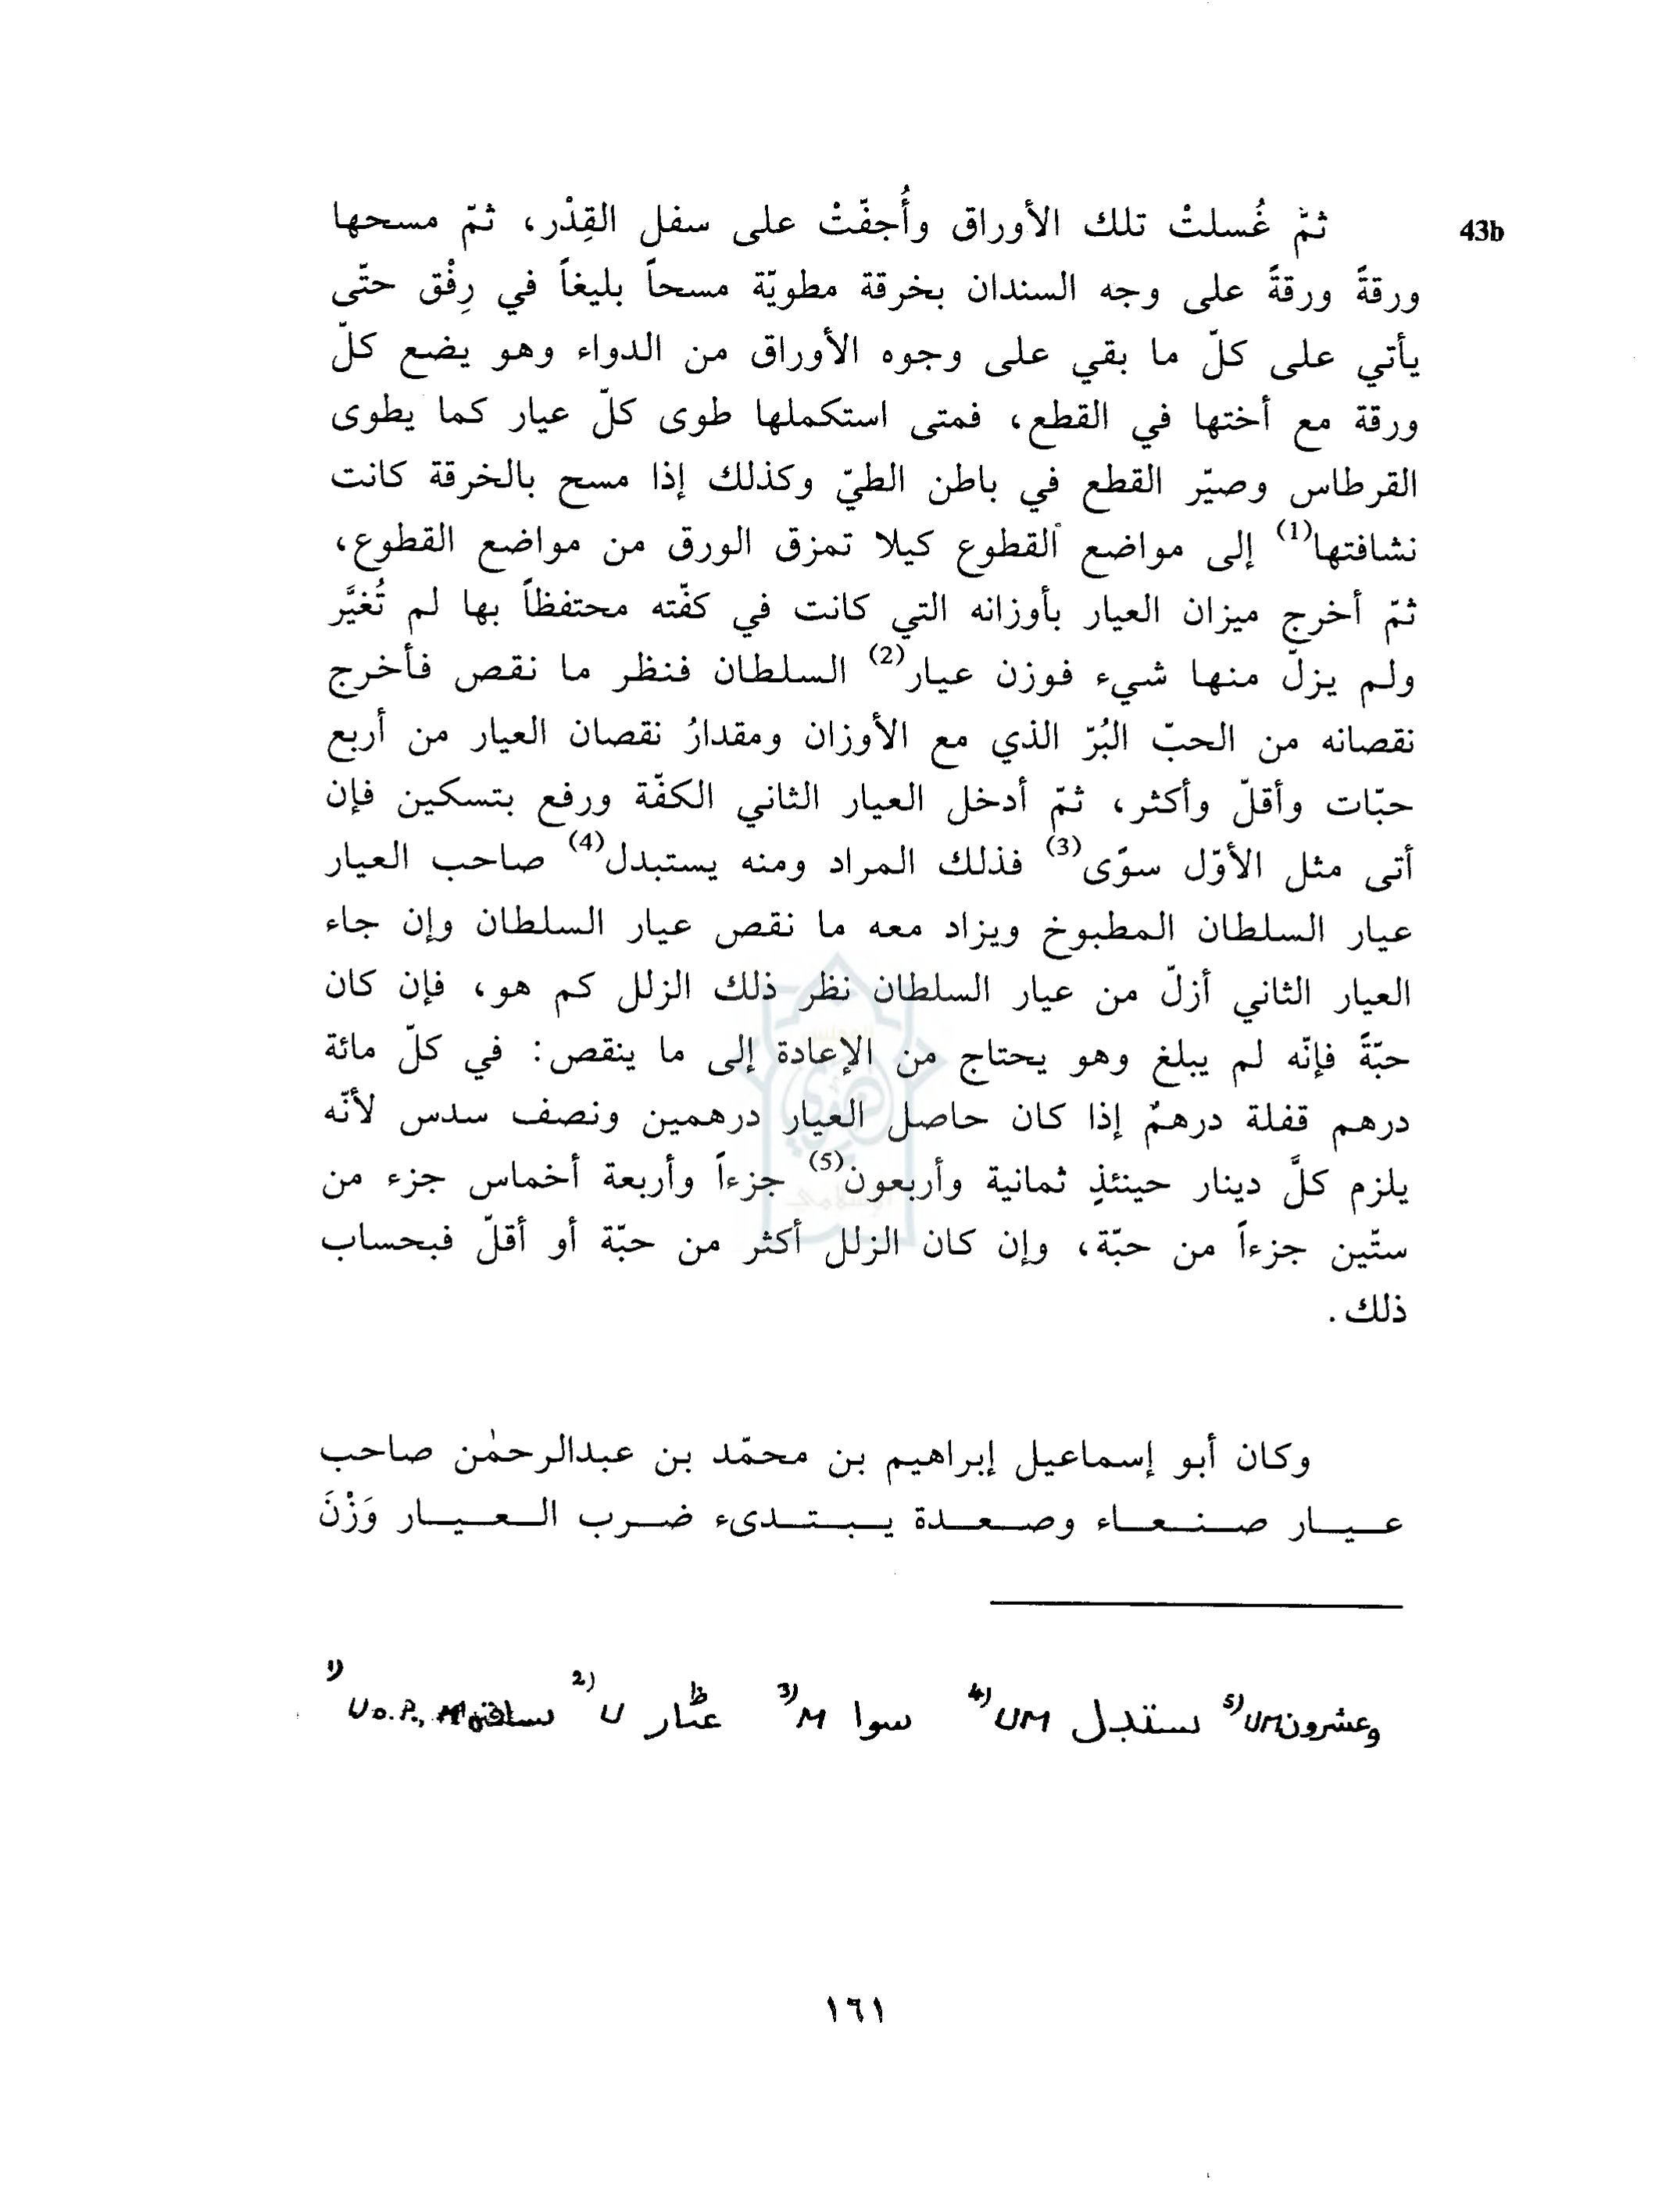 43b
ثمّ غُسلتْ تلك الأوراق وأُجفّتْ على سفل القِدْر، ثمّ مسحها
ورقةً ورقةً على وجه السندان بخرقة مطويّة مسحاً بليغاً في رِفْق حتّى
يأتي على كلّ ما بقي على وجوه الأوراق من الدواء وهو يضع كلّ
ورقة مع أختها في القطع، فمتى استكملها طوى كلّ عيار كما يطوى
القرطاس وصيّر القطع في باطن الطيّ وكذلك إذا مسح بالخرقة كانت
نشافتها(1) إلى مواضع القطوع كيلا تمزق الورق من مواضع القطوع،
ثمّ أخرج ميزان العيار بأوزانه التي كانت في كفّته محتفظاً بها لم تُغيَّر
ولم يزلّ منها شيء فوزن عيار(2) السلطان فنظر ما نقص فأخرج
نقصانه من الحبّ البُرّ الذي مع الأوزان ومقدارُ نقصان العيار من أربع
حبّات وأقلّ وأكثر، ثمّ أدخل العيار الثاني الكفّة ورفع بتسكين فإن
أتى مثل الأوّل سوًى(3) فذلك المراد ومنه يستبدل(4) صاحب العيار
عيار السلطان المطبوخ ويزاد معه ما نقص عيار السلطان وإن جاء
العيار الثاني أزلّ من عيار السلطان نظر ذلك الزلل كم هو، فإن كان
حبّةً فإنّه لم يبلغ وهو يحتاج من الإعادة إلى ما ينقص: في كلّ مائة
درهم قفلة درهمٌ إذا كان حاصل العيار درهمين ونصف سدس لأنّه
يلزم كلَّ دينار حينئذٍ ثمانية وأربعون(5) جزءاً وأربعة أخماس جزء من
ستّين جزءاً من حبّة، وإن كان الزلل أكثر من حبّة أو أقلّ فبحساب
ذلك.
وكان أبو إسماعيل إبراهيم بن محمّد بن عبدالرحمٰن صاحب
عيار صنعاء وصعدة يبتدىء ضرب العيار وَزْنَ
1) U o.P., M 2) U عثار 3) M سوا 4) UM ستبدل 5) UM وعشرون
١٦١